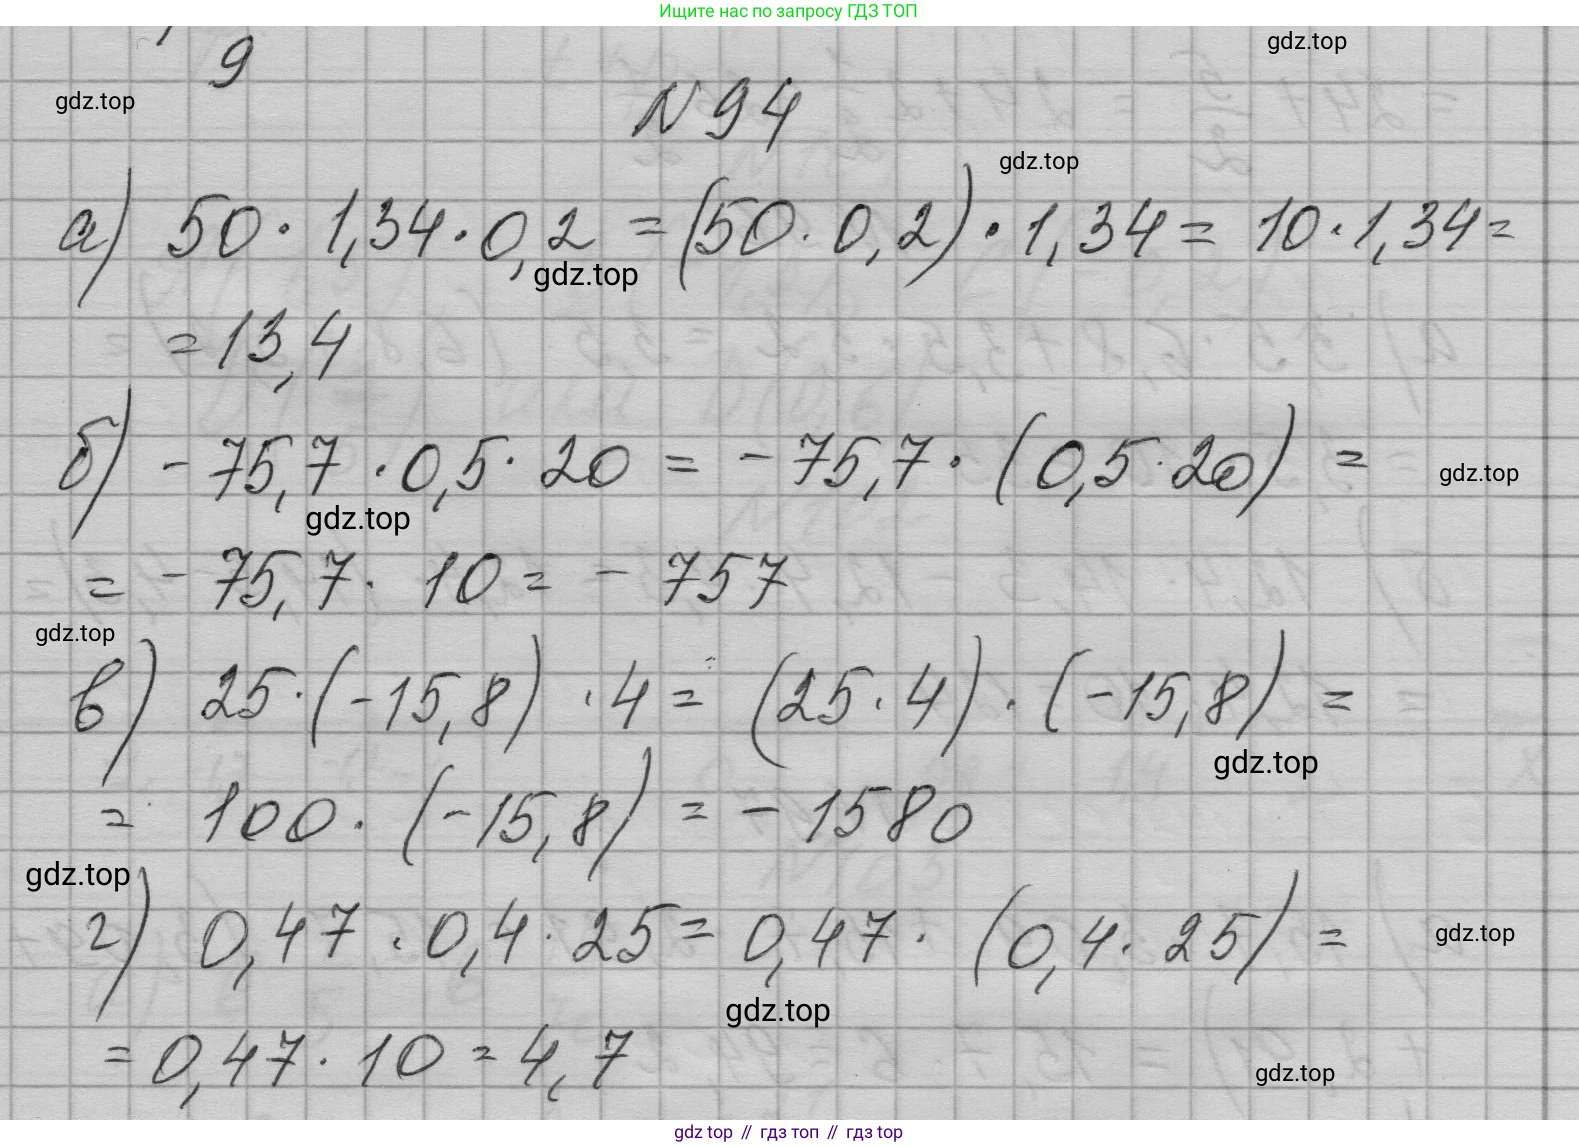 Ищите нас по запросу ГДЗ ТОП
9
gdz.top
gdz.top
№ 94
gdz.top
а) 50 · 1,34 · 0,2 = (50 · 0,2) · 1,34 = 10 · 1,34 =
gdz.top
= 13,4
б) - 75,7 · 0,5 · 20 = - 75,7 · (0,5 · 20) =
gdz.top
gdz.top
= - 75,7 · 10 = - 757
gdz.top
в) 25 · (-15,8) · 4 = (25 · 4) · (-15,8) =
gdz.top
= 100 · (-15,8) = - 1580
gdz.top
г) 0,47 · 0,4 · 25 = 0,47 · (0,4 · 25) =
gdz.top
gdz.top
= 0,47 · 10 = 4,7
gdz.top
gdz top // гдз топ // гдз top